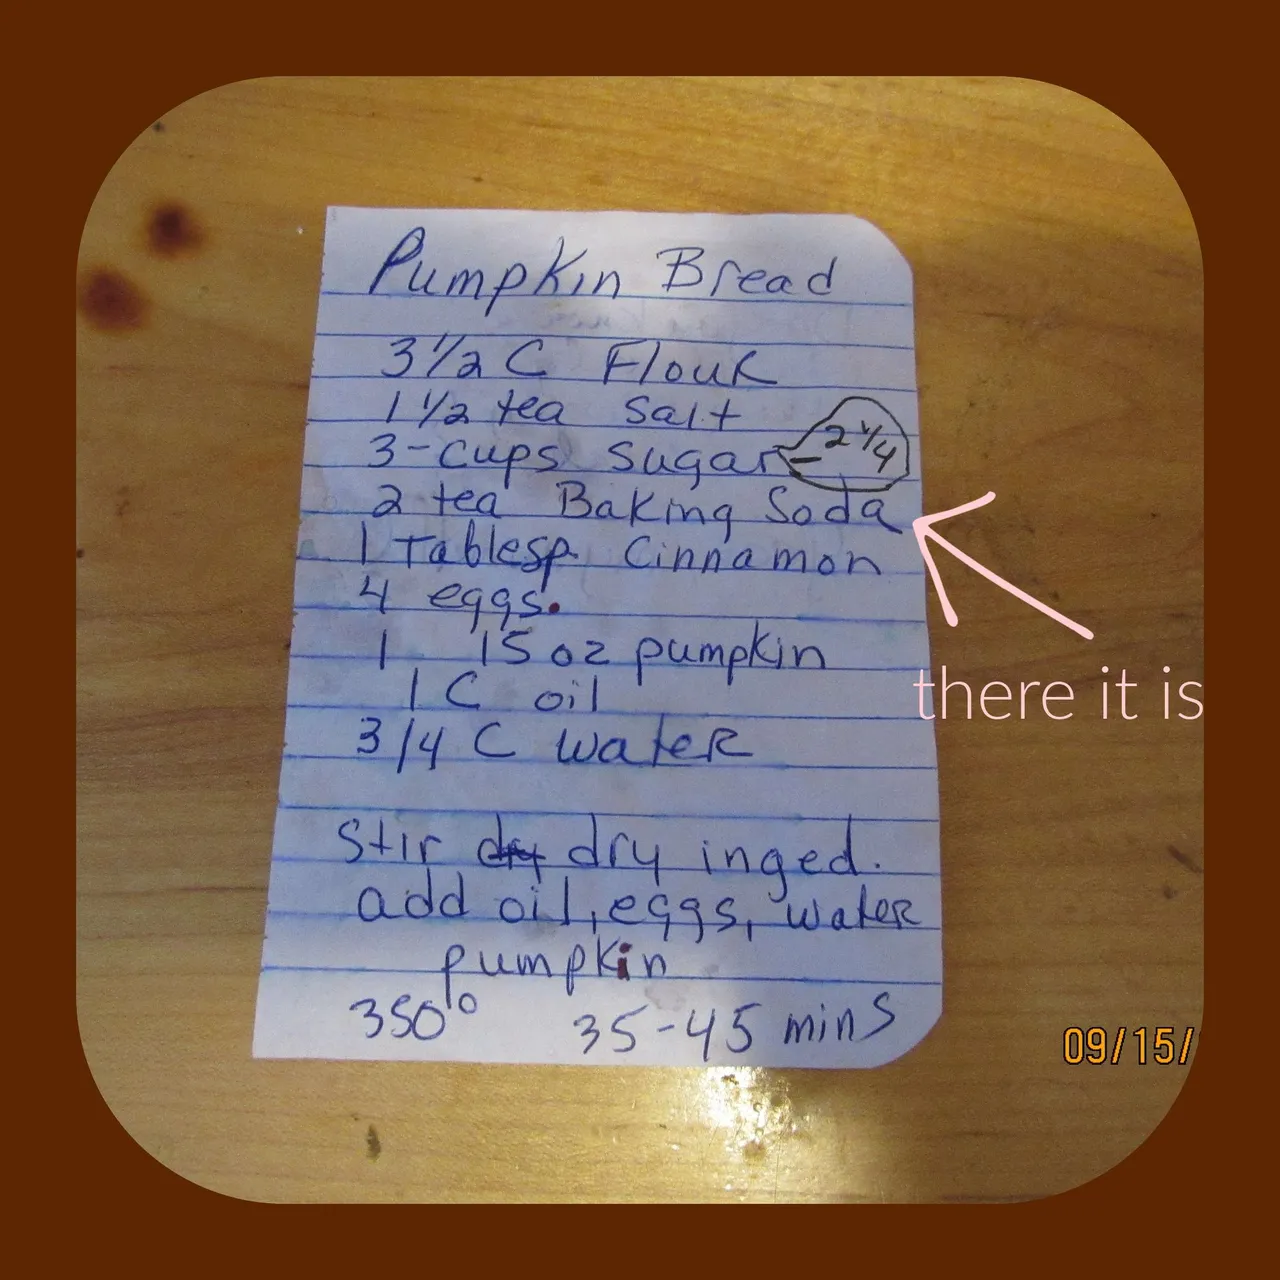 Pumpkin Bread
3 1/2 C Flour
1 1/2 tea Salt
3-cups sugar - 2 1/4
2 tea Baking Soda
1 Tablesp. Cinnamon
4 eggs.
1 15 oz pumpkin
1 C oil
3/4 C water
there it is
Stir dry dry inged.
add oil, eggs, water
pumpkin
350° 35-45 mins
09/15/